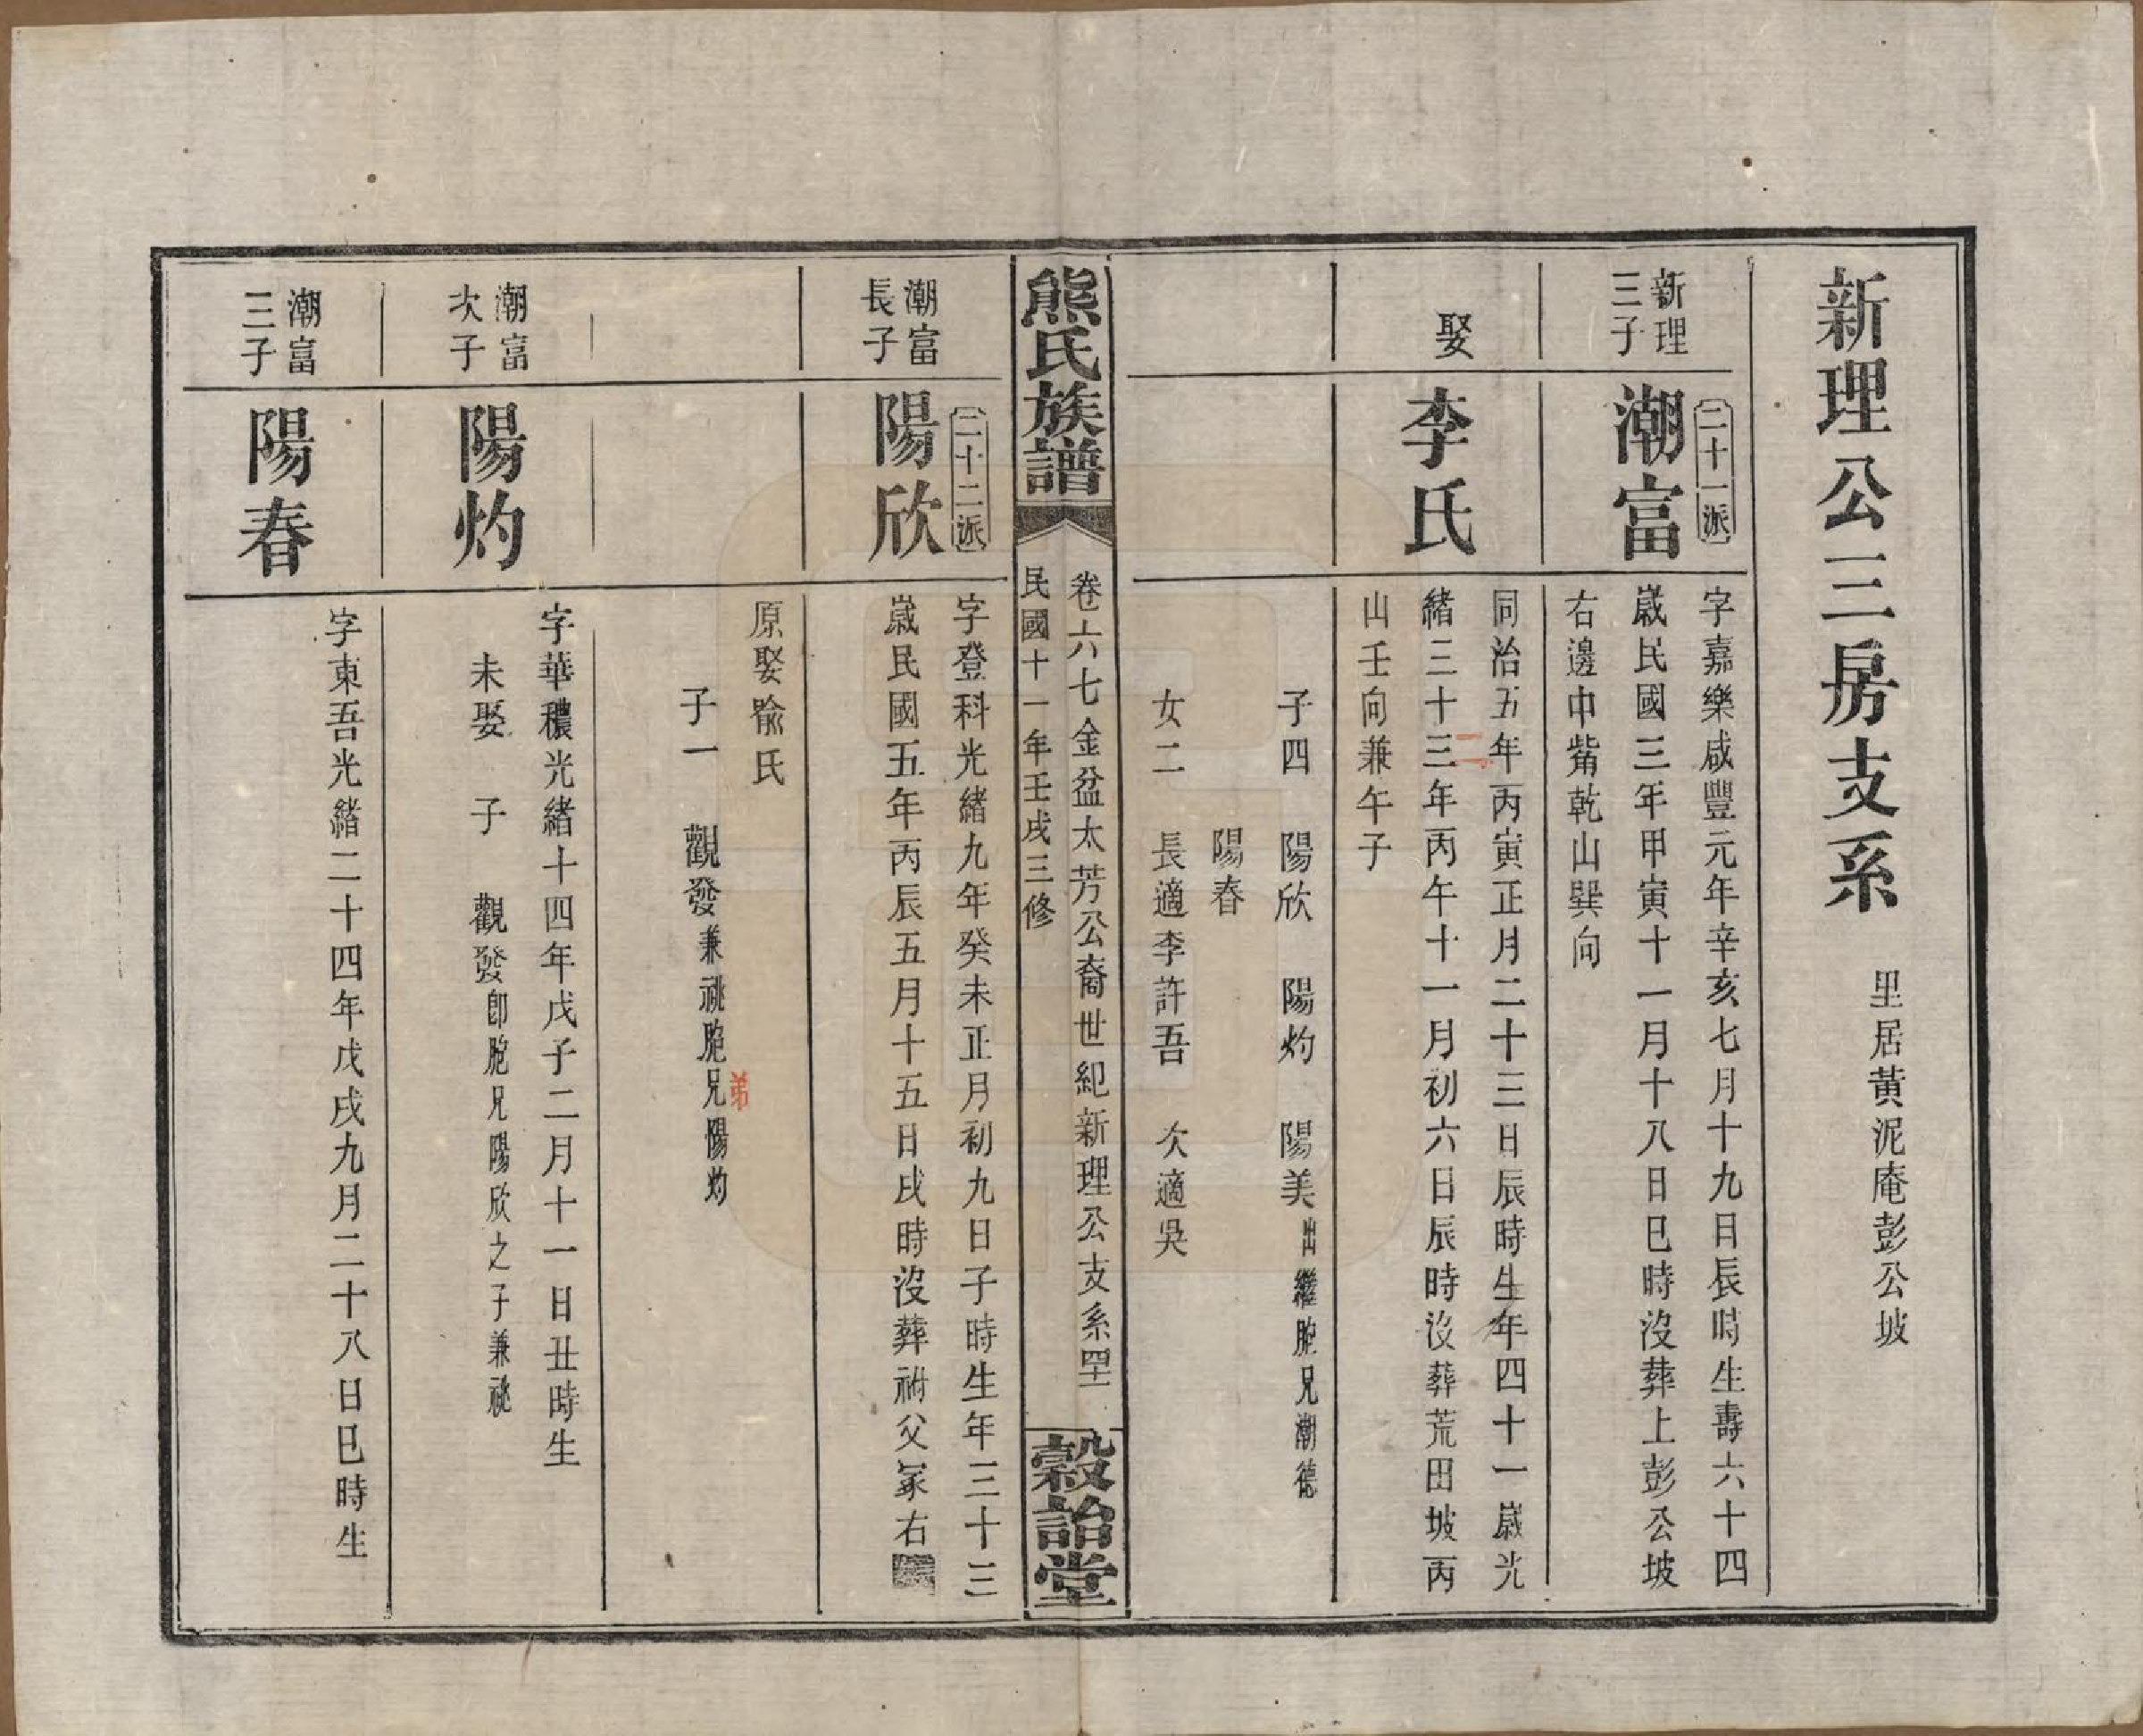 新理公三房支系
里居黃泥庵彭公坡
新理
三子
二十一派
潮富
字嘉樂咸豐元年辛亥七月十九日辰時生壽六十四
歲民國三年甲寅十一月十八日巳時沒葬上彭公坡
右邊中觜乾山巽向
娶
李氏
同治五年丙寅正月二十三日辰時生年四十一歲光
緒三十三年丙午十一月初六日辰時沒葬荒田坡丙
二
山壬向兼午子
子四 陽欣 陽灼 陽美出繼胞兄潮德
陽春
女二 長適李許吾 次適吳
熊氏族譜
卷六七金盆太芳公裔世紀新理公支系四十一
民國十一年壬戌三修
穀詒堂
潮富
長子
二十二派
陽欣
字登科光緒九年癸未正月初九日子時生年三十三
歲民國五年丙辰五月十五日戌時沒葬祔父冢右
原娶喻氏
子一 觀發兼祧胞兄陽灼
弟
潮富
次子
陽灼
字華穠光緒十四年戊子二月十一日丑時生
未娶 子 觀發卽胞兄陽欣之子兼祧
潮富
三子
陽春
字東吾光緒二十四年戊戌九月二十八日巳時生